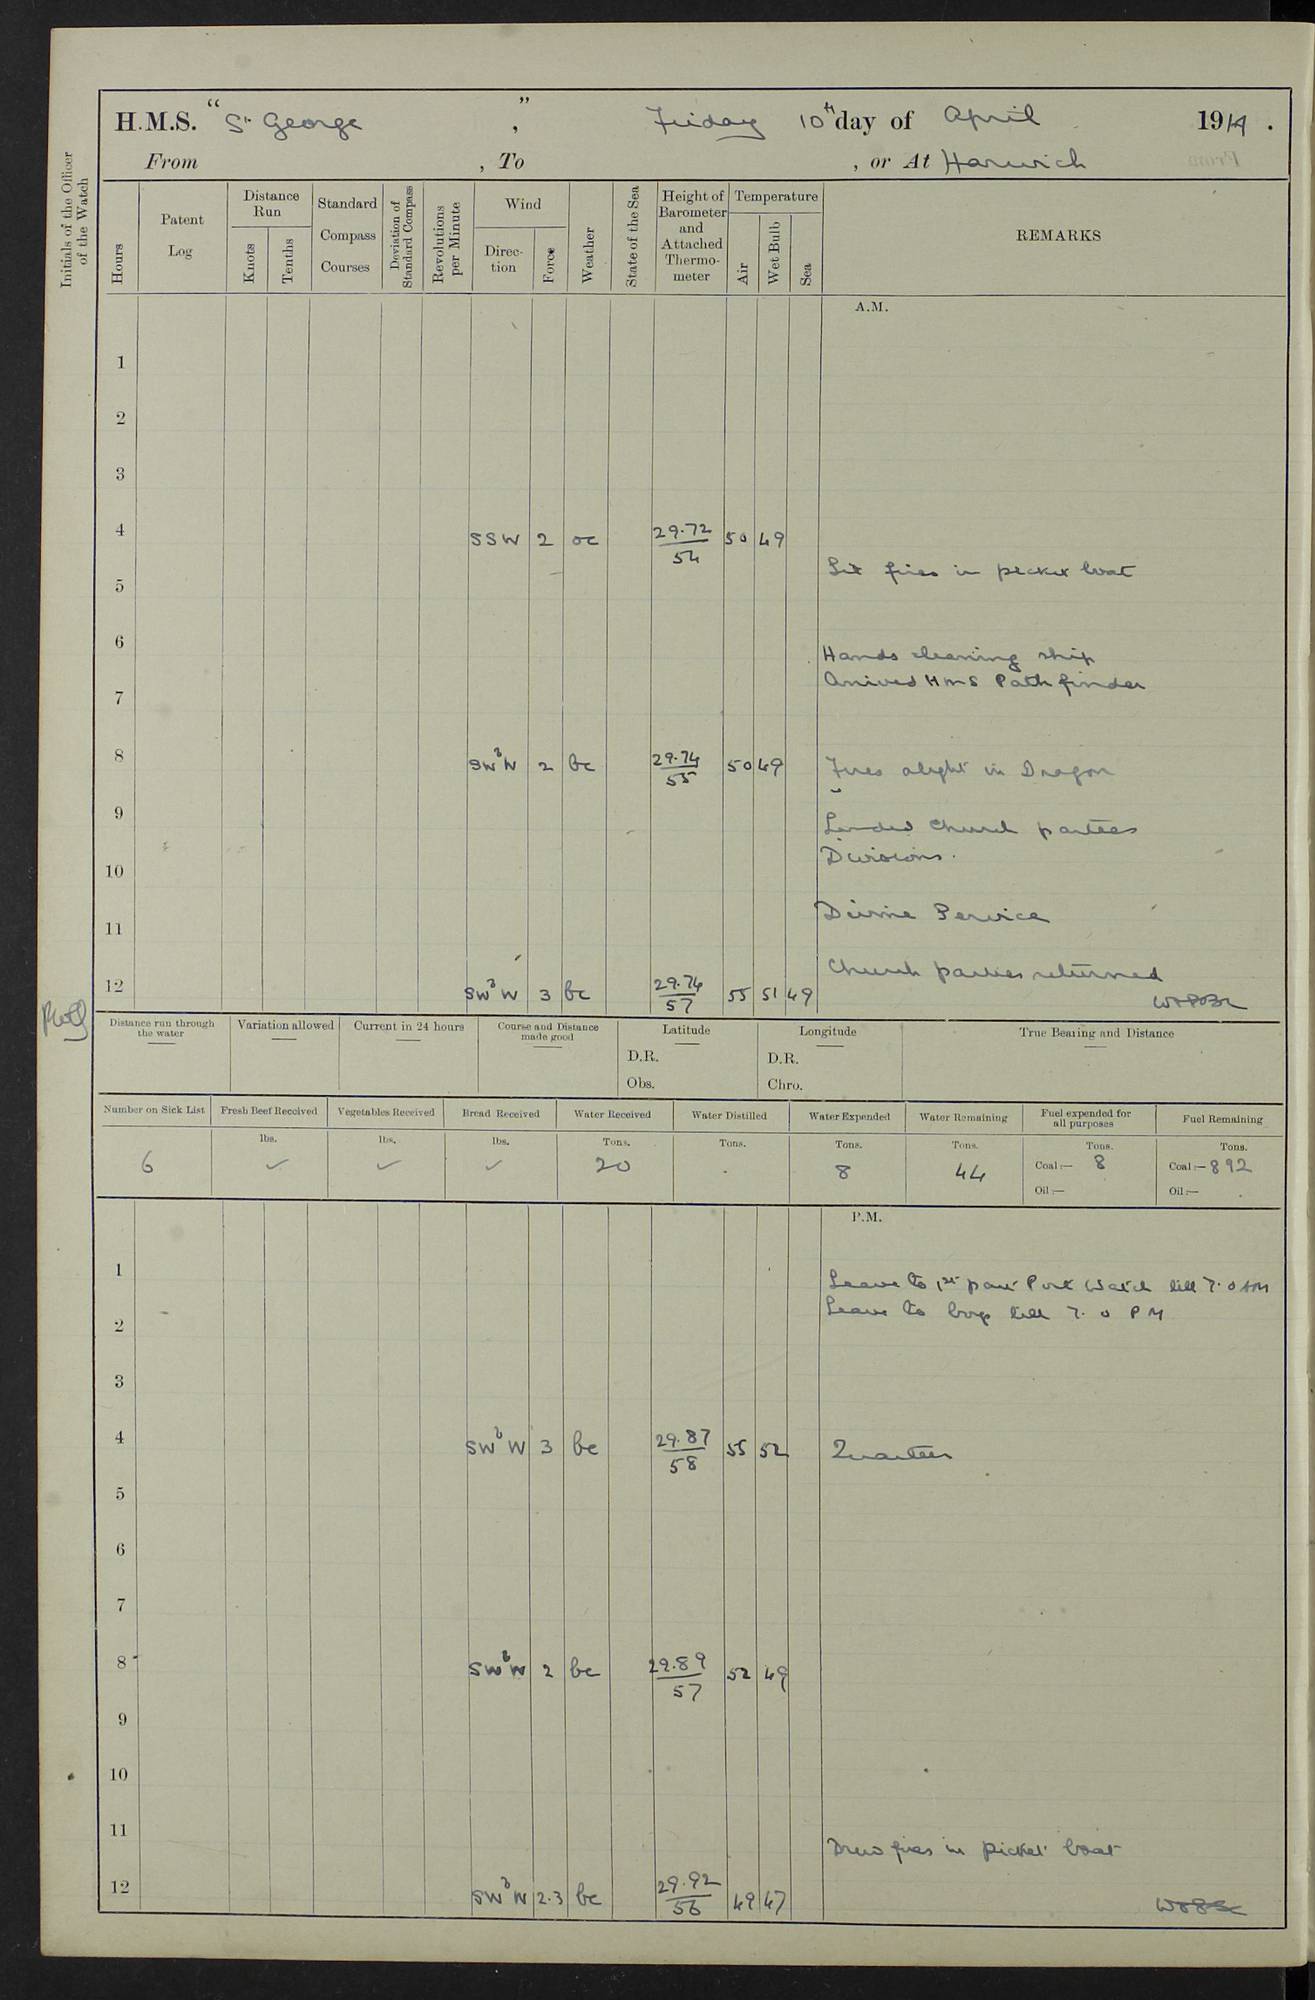 H.M.S. "St. George", Friday 10th day of April 1914.
From , To , or At Harwich
Initials of the Officer of the Watch
Hours
Patent Log
Distance Run
Knots
Tenths
Standard Compass Courses
Deviation of Standard Compass
Revolutions per Minute
Wind
Direction
Force
Weather
State of the Sea
Height of Barometer and Attached Thermometer
Temperature
Air
Wet Bulb
Sea
REMARKS
A.M.
1
2
3
4 SSW 2 oc 29.72/54 50 49
Lit fires in picket boat
5
6
Hands cleaning ship
Arrived HMS Pathfinder
7
8 SWbW 2 bc 29.74/55 50 49 Fires alight in Dragon
9
Landed Church parties
Divisions.
10
Divine Service
11
Church parties returned
12 SWbW 3 bc 29.74/57 55 51 49
Distance run through the water
Variation allowed
Current in 24 hours
Course and Distance made good
Latitude
D.R.
Obs.
Longitude
D.R.
Chro.
True Bearing and Distance
Number on Sick List
6
Fresh Beef Received
lbs.
✓
Vegetables Received
lbs.
✓
Bread Received
lbs.
✓
Water Received
Tons.
20
Water Distilled
Tons.
Water Expended
Tons.
8
Water Remaining
Tons.
44
Fuel expended for all purposes
Tons.
Coal:— 8
Oil:—
Fuel Remaining
Tons.
Coal:— 892
Oil:—
P.M.
1
Leave to 1st part Port Watch till 7.0 AM
Leave to boys till 7.0 PM
2
3
4 SWbW 3 bc 29.87/58 55 52 Quarters
5
6
7
8 SWbW 2 bc 29.89/57 52 49
9
10
11
Drew fires in picket boat
12 SWbW 2.3 bc 29.92/56 49 47